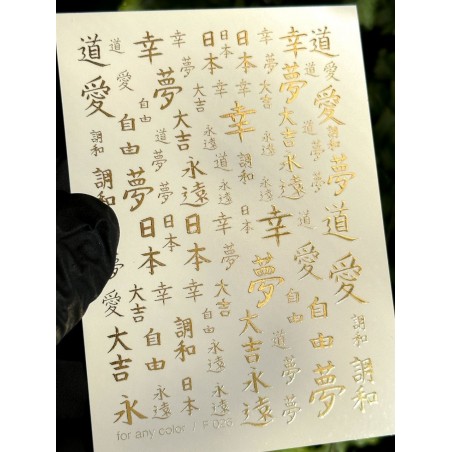 道
愛
調和
調和
夢
愛
大吉
永
道
愛
自由
自由
夢
日本
大吉
自由
永遠
幸
幸
夢
夢
大吉
道
夢
夢
永遠
日本
日本
幸
調和
日本
日本
日本
大吉
幸
永遠
道
永遠
幸
夢
大吉
自由
永遠
日本
夢
幸
調和
日本
夢
大吉
永遠
幸
夢
大吉
永遠
幸
道
夢
夢
幸
夢
大吉
永遠
道
愛
自由
自由
夢
道
道
愛
愛
道
夢
夢
調和
夢
道
愛
調和
調和
for any color /